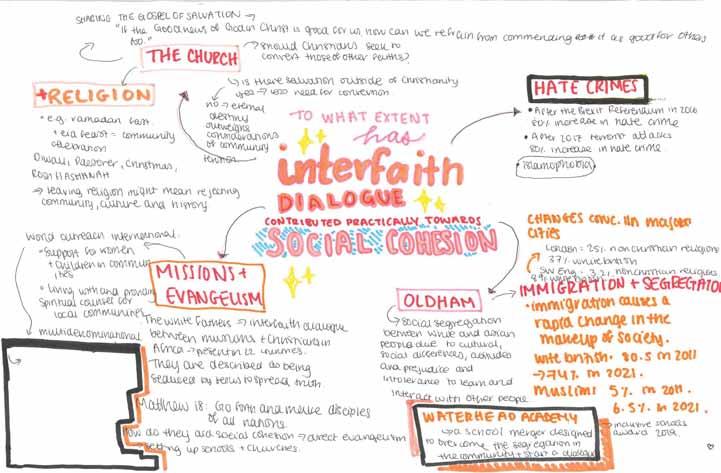 SHARING THE GOSPEL OF SALVATION →
"If the Good news of God in Christ is good for us, how can we refrain from commending it as good for others too."
THE CHURCH
↳ should Christians seek to
convert those of other faiths?
↳ is there salvation outside of Christianity
yes → less need for conversion
no → eternal
destiny
outweighs
considerations
of community
+RELIGION
• e.g. ramadan fast
+ eid feast = community
celebration
Diwali, Passover, Christmas,
Rosh Hashanah
→ leaving religion might mean rejecting
community, culture and history
TO WHAT EXTENT
has
interfaith
DIALOGUE
CONTRIBUTED PRACTICALLY TOWARDS
SOCIAL COHESION
HATE CRIMES
• After the Brexit Referendum in 2016
80% increase in hate crime
• After 2017 terrorist attacks
80% increase in hate crime.
Islamophobia
CHANGES CONC. IN major
cities
London = 25% non christian religions
37% white british
SW Eng = 3.2% non christian religions
IMMIGRATION + SEGREGATION
• immigration causes a
rapid change in the
makeup of society.
white british: 80.5 in 2011
→ 74% in 2021.
Muslims 5% in 2011.
6.5% in 2021.
World outreach international
• Support for women
+ children in communities
• living with and providing
spiritual counsel for
local communities.
multidenominational
MISSIONS +
EVANGELISM
The white fathers → interfaith dialogue
between muslims + Christians in
Africa → present in 22 countries.
They are described as being
seduced by to spread truth.
Matthew 18: Go forth and make disciples
of all nations.
How do they aid social cohesion → direct evangelism
setting up schools + churches.
OLDHAM
↳ social segregation
between white and asian
people due to cultural,
social differences, attitudes
and prejudice and
intolerance to learn and
interact with other people
WATERHEAD ACADEMY
↳ a school merger designed
to overcome the segregation in
the community + start a dialogue
→ inclusive schools
award 2019.